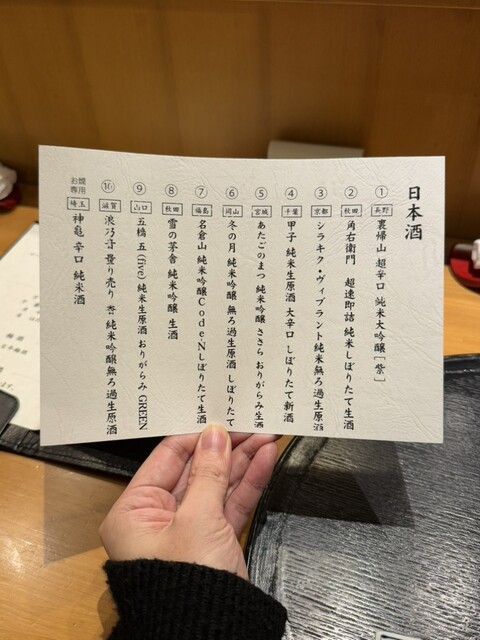 日本酒
① 長野 裏帰山 超辛口 純米大吟醸［紫］
② 秋田 角右衛門 超速即詰 純米しぼりたて生酒
③ 京都 シラキク・ヴィブラント純米無ろ過生原酒
④ 千葉 甲子 純米生原酒 大辛口 しぼりたて新酒
⑤ 宮城 あたごのまつ 純米吟醸 ささら おりがらみ生酒
⑥ 岡山 冬の月 純米吟醸 無ろ過生原酒 しぼりたて
⑦ 福島 名倉山 純米吟醸CodeNしぼりたて生酒
⑧ 秋田 雪の茅舎 純米吟醸 生酒
⑨ 山口 五橋 五(five) 純米生原酒 おりがらみ GREEN
⑩ 滋賀 浪乃音 量り売り 壱 純米吟醸無ろ過生原酒
お燗
専用
埼玉 神亀 辛口 純米酒